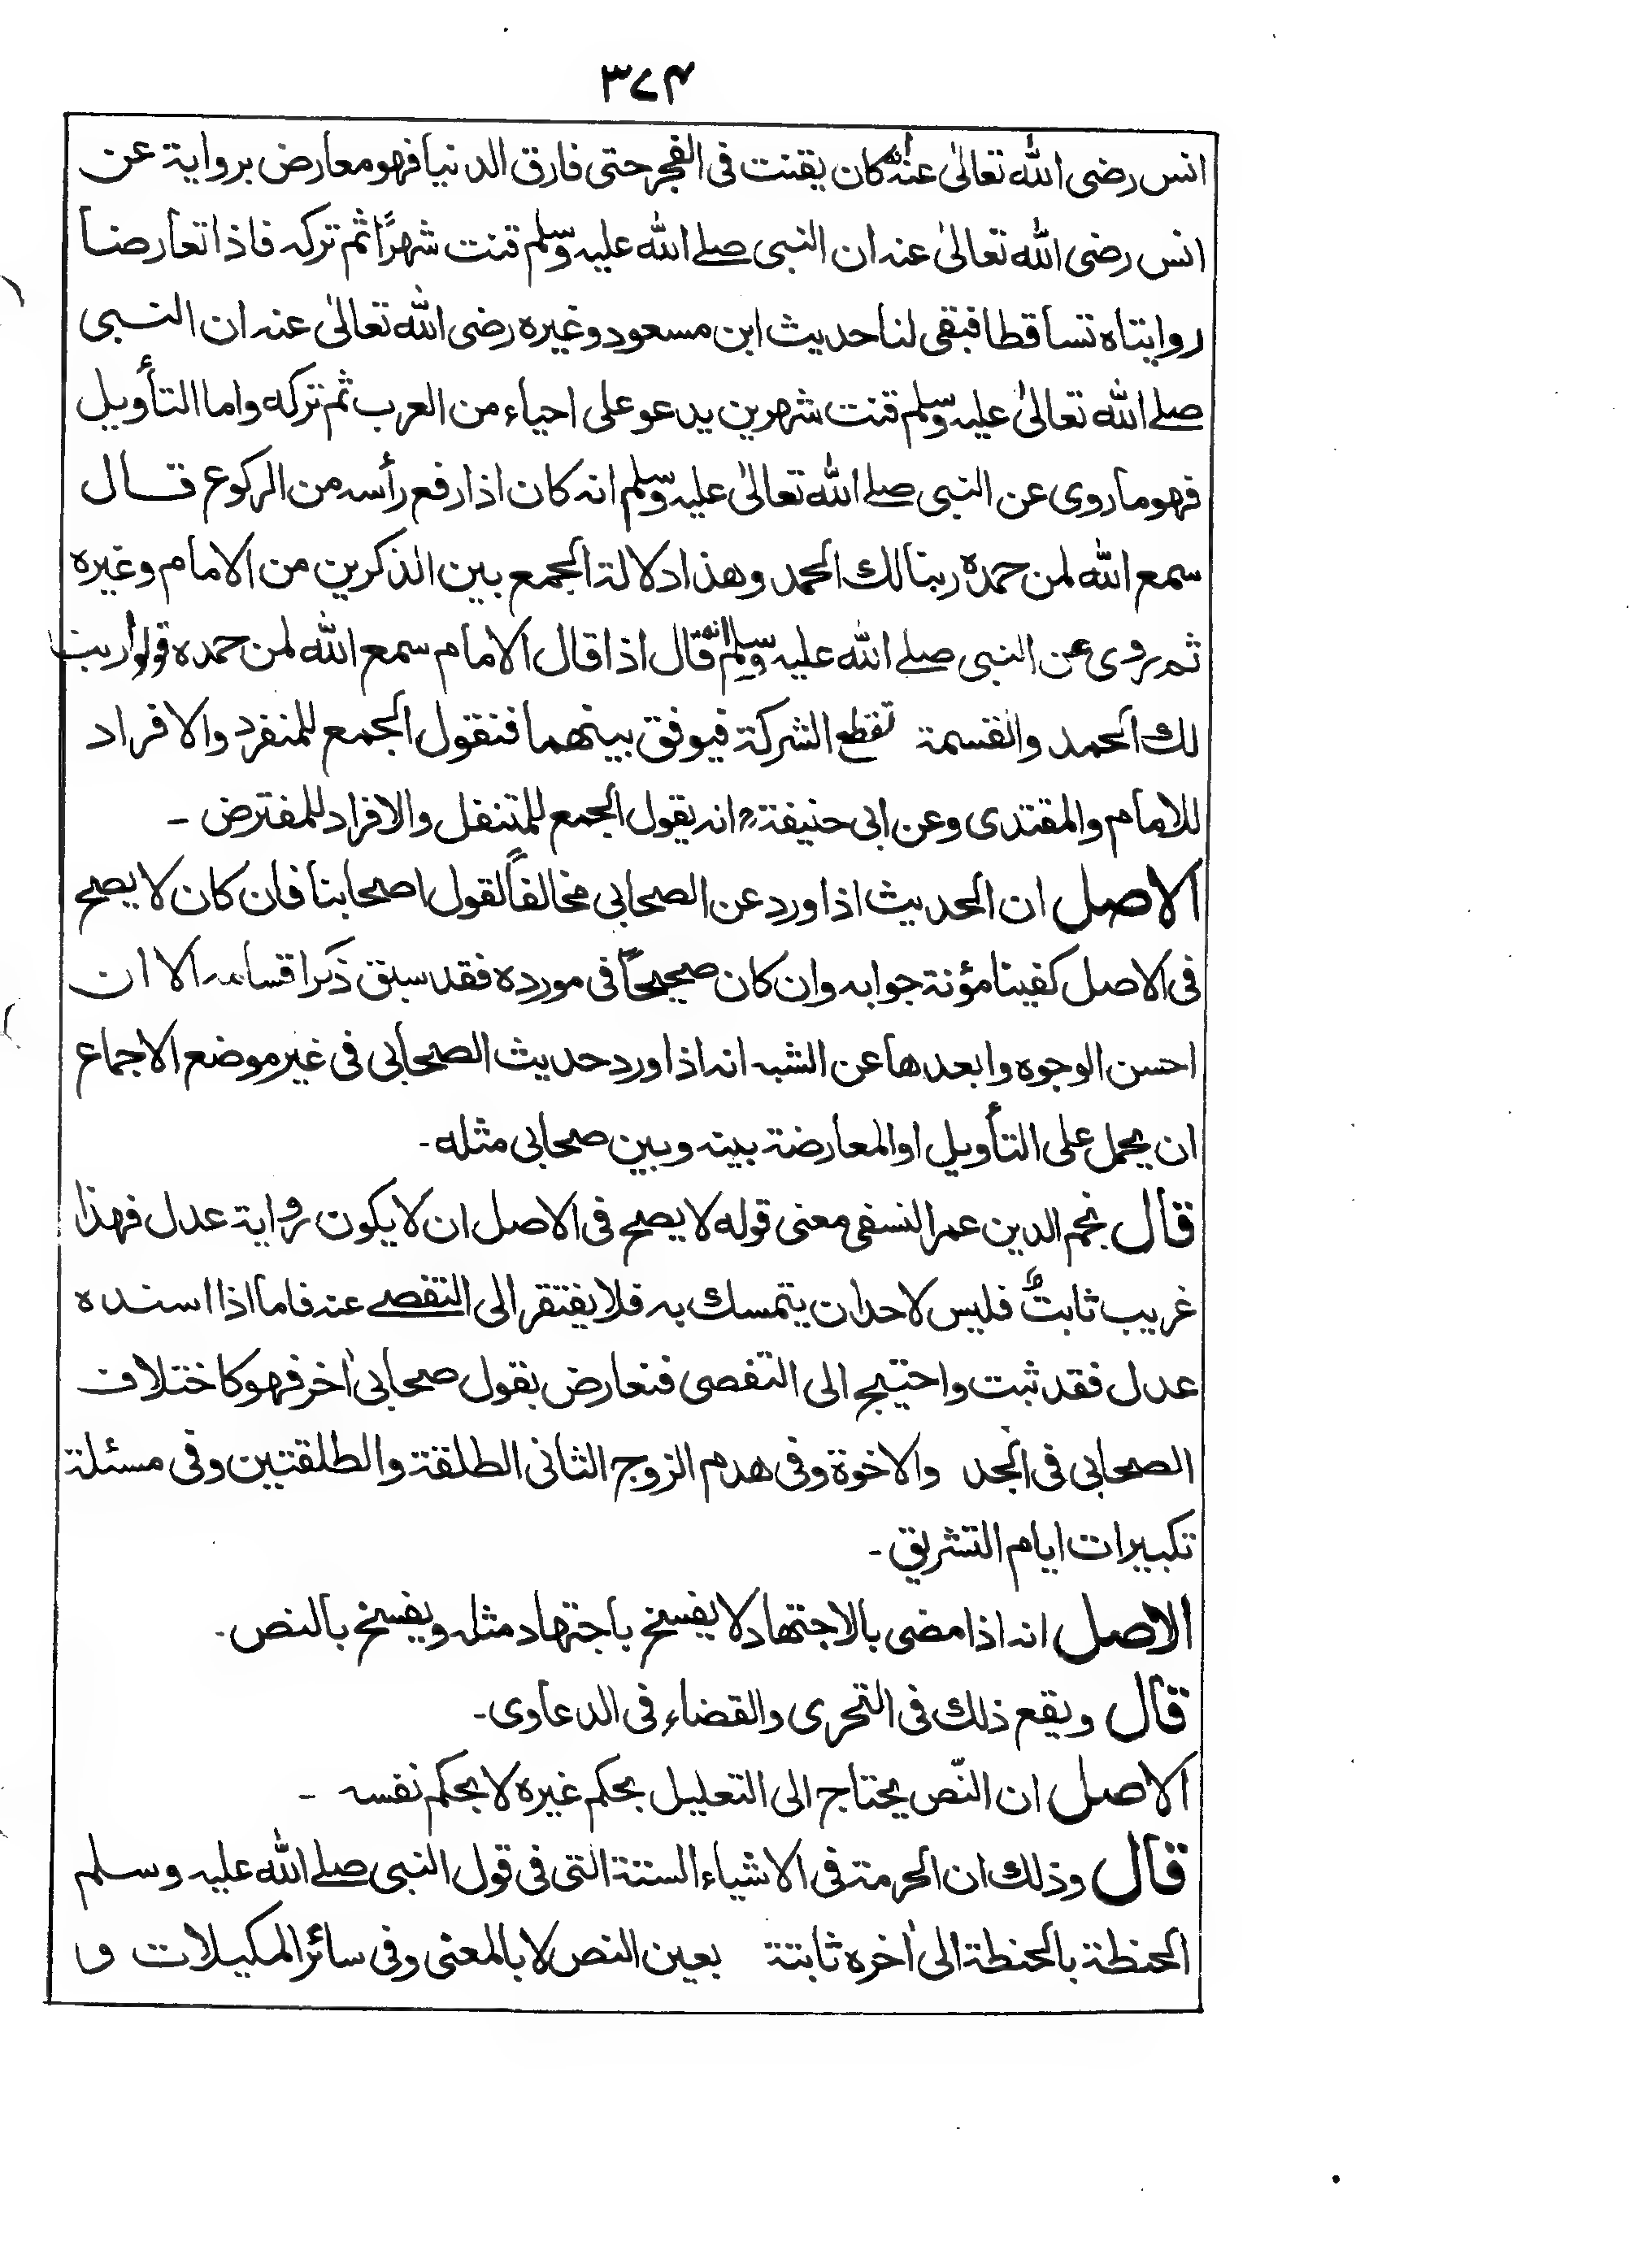 ٣٧٤
انس رضى الله تعالىٰ عنه انه كان يقنت فى الفجر حتى فارق الدنيا فهو معارض برواية عن
انس رضى الله تعالىٰ عنه ان النبى صلے الله عليه وسلم قنت شهرًا ثم تركه فاذا تعارضا
روايتاه تساقطا فبقى لنا حديث ابن مسعود وغيره رضى الله تعالىٰ عنه ان النبى
صلے الله تعالىٰ عليه وسلم قنت شهرين يدعو على احياء من العرب ثم تركه واما التأويل
فهو ما روى عن النبى صلے الله تعالىٰ عليه وسلم انه كان اذا رفع رأسه من الركوع قال
سمع الله لمن حمده ربنا لك الحمد وهذا دلالة الجمع بين الذكرين من الامام وغيره
ثم روى عن النبى صلے الله عليه وسلم انه قال اذا قال الامام سمع الله لمن حمده قولوا ربنا
لك الحمد والقسمة تقطع الشركة فيوفق بينهما فنقول الجمع للمنفرد والافراد
للامام والمقتدى وعن ابى حنيفةؒ انه يقول الجمع للمتنفل والافراد للمفترض ـ
الاصل ان الحديث اذا ورد عن الصحابى مخالفاً لقول اصحابنا فان كان لا يصح
فى الاصل كفينا مؤنة جوابه وان كان صحيحاً فى مورده فقد سبق ذكر اقسامه الا ان
احسن الوجوه وابعدها عن الشبه انه اذا ورد حديث الصحابى فى غير موضع الاجماع
ان يحمل على التأويل او المعارضة بينه وبين صحابى مثله ـ
قال نجم الدين عمر النسفى معنى قوله لا يصح فى الاصل ان لا يكون رواية عدل فهذا
غريب ثابتٌ فليس لاحد ان يتمسك به فلا يفتقر الى التفصے عنه فاما اذا اسنده
عدل فقد ثبت واحتيج الى التفصى فنعارض بقول صحابى اٰخر فهو كاختلاف
الصحابى فى الجد والاخوة وفى هدم الزوج الثانى الطلقة والطلقتين وفى مسئلة
تكبيرات ايام التشريق ـ
الاصل انه اذا مضى بالاجتهاد لا يفسخ باجتهاد مثله ويفسخ بالنص ـ
قال ويقع ذلك فى التحرى والقضاء فى الدعاوى ـ
الاصل ان النّص يحتاج الى التعليل بحكم غيره لا بحكم نفسه ـ
قال وذلك ان الحرمة فى الاشياء الستة التى فى قول النبى صلے الله عليه وسلم
الحنطة بالحنطة الى اٰخره ثابتة بعين النص لا بالمعنى وفى سائر المكيلات و